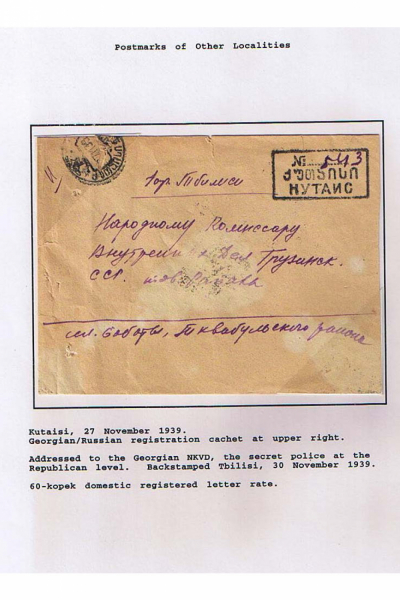 Postmarks of Other Localities
№ 543
ქუთაისი
КУТАИС
гор Тбилиси
Народному Комиссару
Внутренн х Дел Грузинск.
ССР. тов.
Тквабульского района
Kutaisi, 27 November 1939.
Georgian/Russian registration cachet at upper right.
Addressed to the Georgian NKVD, the secret police at the
Republican level. Backstamped Tbilisi, 30 November 1939.
60-kopek domestic registered letter rate.